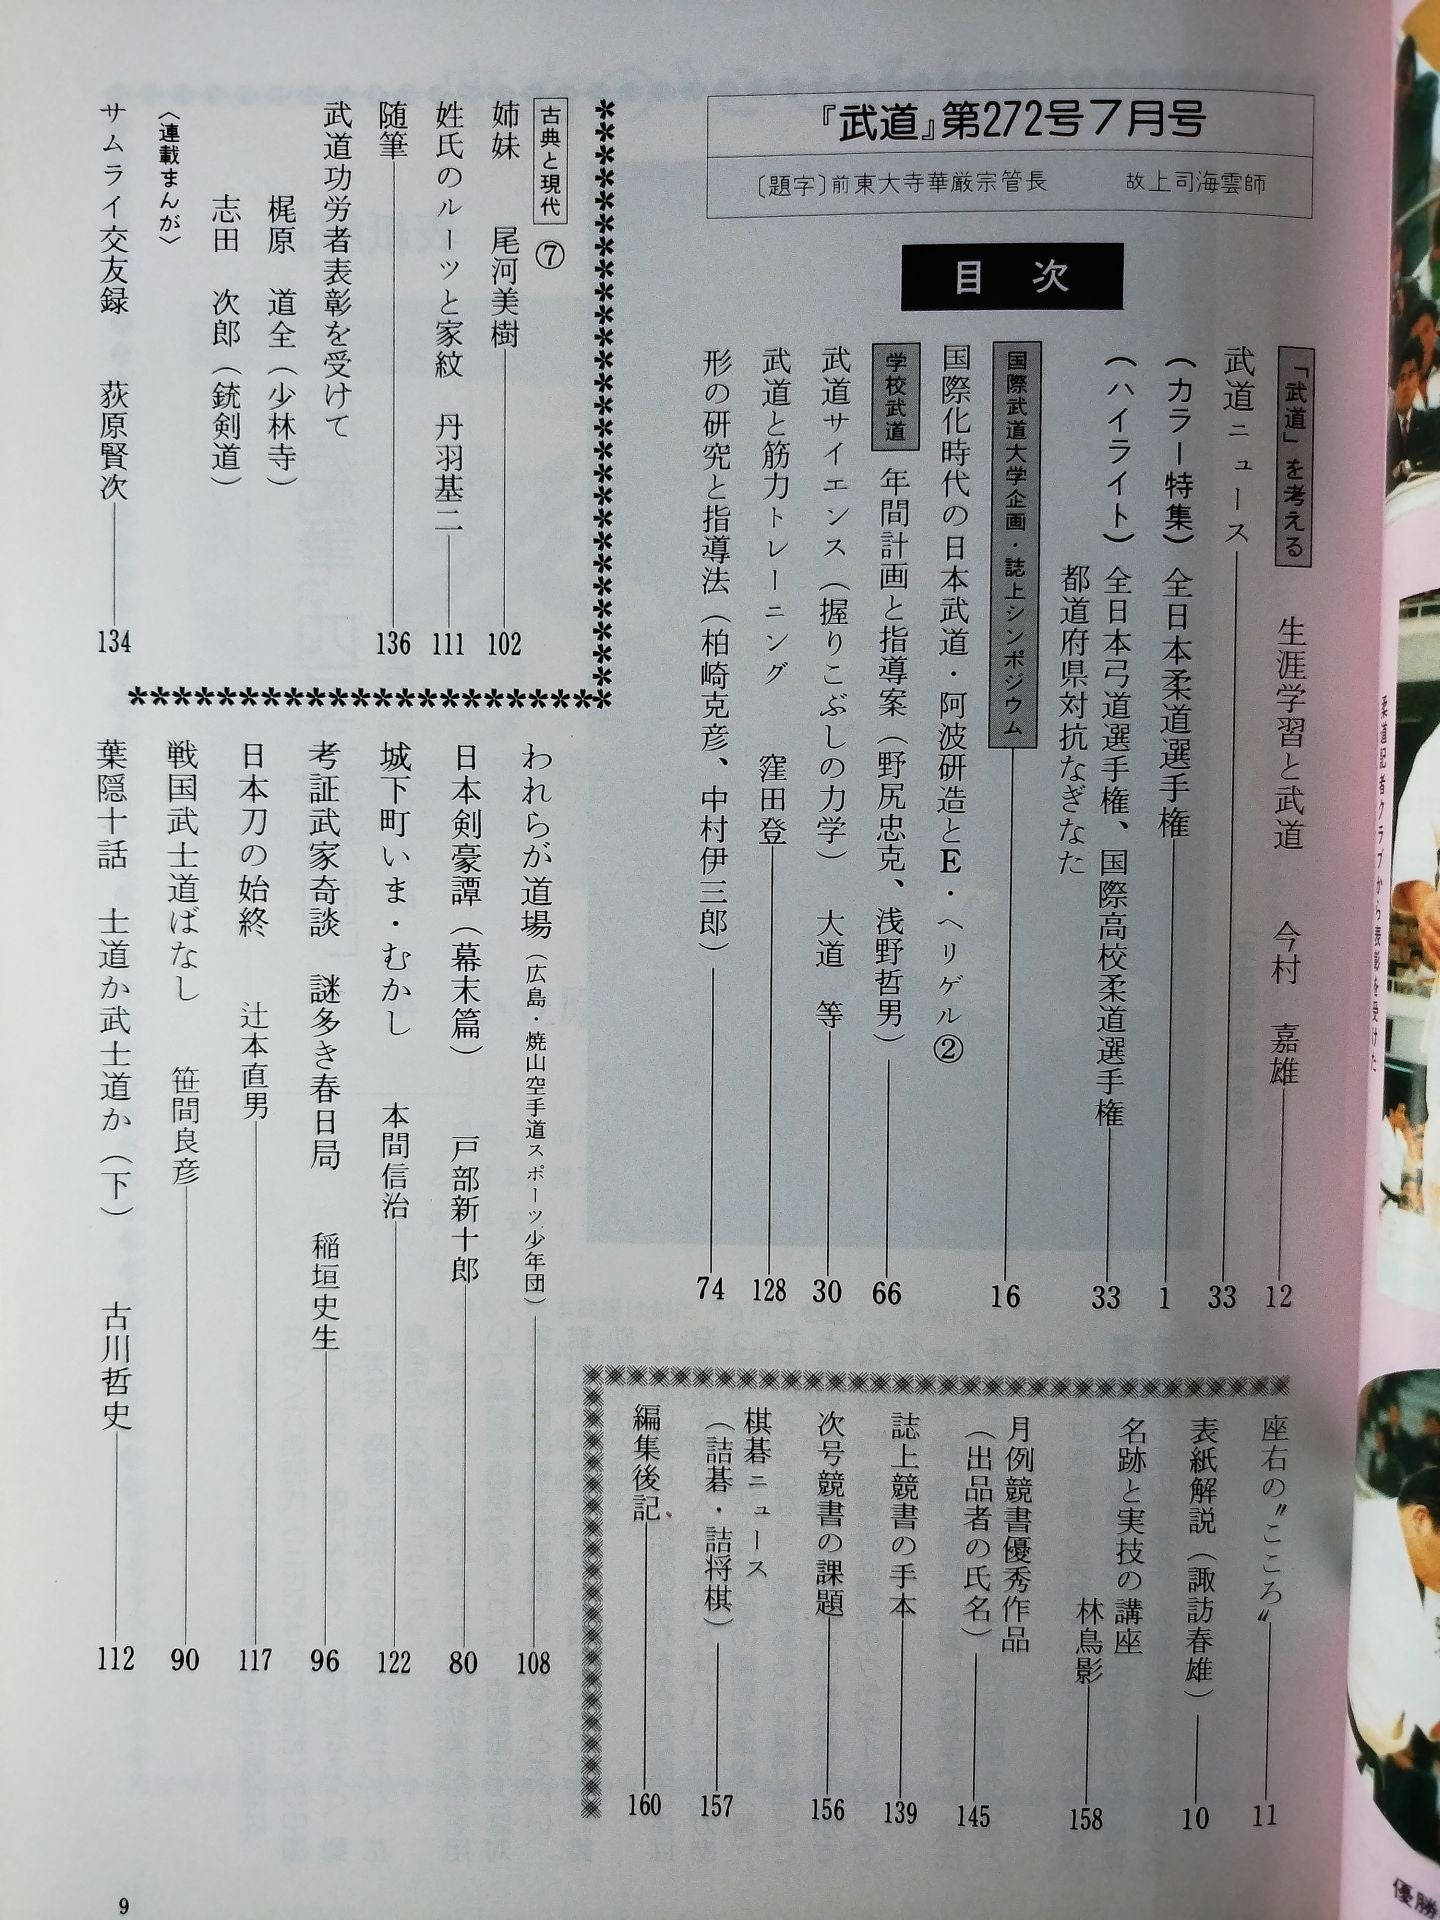 『武道』第272号7月号
〔題字〕前東大寺華厳宗管長　故上司海雲師
目次
「武道」を考える　生涯学習と武道　今村　嘉雄 12
武道ニュース 33
（カラー特集）全日本柔道選手権 1
（ハイライト）全日本弓道選手権、国際高校柔道選手権 33
都道府県対抗なぎなた
国際武道大学企画・誌上シンポジウム 16
国際化時代の日本武道・阿波研造とE・ヘリゲル②
学校武道　年間計画と指導案（野尻忠克、浅野哲男） 66
武道サイエンス（握りこぶしの力学）大道　等 30
武道と筋力トレーニング　窪田登 128
形の研究と指導法（柏崎克彦、中村伊三郎） 74
古典と現代⑦
姉妹　尾河美樹 102
姓氏のルーツと家紋　丹羽基二 111
随筆 136
武道功労者表彰を受けて
梶原　道全（少林寺）
志田　次郎（銃剣道）
〈連載まんが〉
サムライ交友録　荻原賢次 134
われらが道場（広島・焼山空手道スポーツ少年団） 108
日本剣豪譚（幕末篇）　戸部新十郎 80
城下町いま・むかし　本間信治 122
考証武家奇談　謎多き春日局　稲垣史生 96
日本刀の始終　辻本直男 117
戦国武士道ばなし　笹間良彦 90
葉隠十話　士道か武士道か（下）　古川哲史 112
座右の〝こころ〟 11
表紙解説（諏訪春雄） 10
名跡と実技の講座
林鳥影 158
月例競書優秀作品
（出品者の氏名） 145
誌上競書の手本 139
次号競書の課題 156
棋碁ニュース
（詰碁・詰将棋） 157
編集後記 160
9
柔道記者クラブから表彰を受けた
優勝